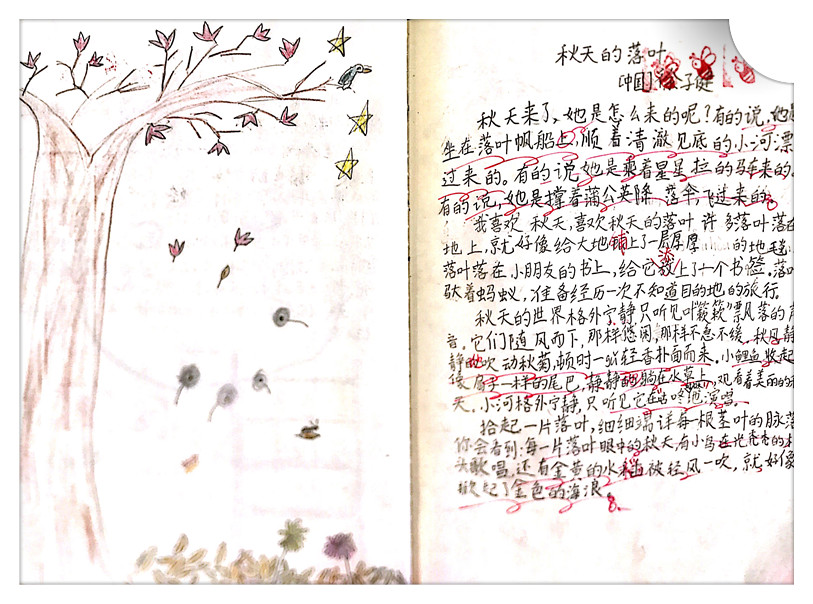 秋天的落叶
中国 子健
秋天来了,她是怎么来的呢?有的说,她是
坐在落叶帆船上,顺着清澈见底的小河漂
过来的。有的说她是乘着星星拉的马车来的。
有的说,她是撑着蒲公英降落伞,飞过来的。
我喜欢秋天,喜欢秋天的落叶许多落叶落在
地上,就好像给大地铺上了一层厚厚的地毯
落叶落在小朋友的书上,给它添上了一个书签,落
驮着蚂蚁,准备经历一次不知道目的地的旅行。
秋天的世界格外宁静只听见叶“簌簌”飘风落的声
音。它们随风而下,那样悠闲,那样不急不缓,秋风静
静地吹动秋菊,顿时一股轻香扑面而来,小鲤鱼收起
像扇子一样的尾巴,静静的躺在水草上,观看着美丽的秋
天,小河格外宁静,只听见它在咕咚地演唱。
拾起一片落叶,细细端详每一根茎叶的脉落
你会看到:每一片落叶眼中的秋天,有小鸟在光秃秃的
头歌唱,还有金黄的水稻被轻风一吹,就好像
掀起了金色的海浪。